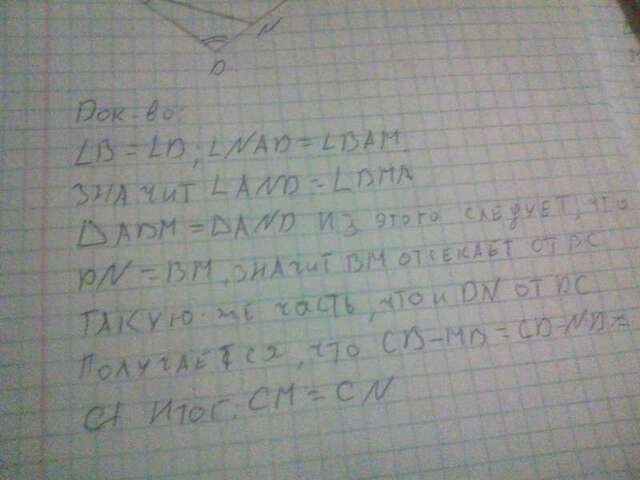 N
D
Док-во:
∠B = ∠D; ∠NAD = ∠BAM
ЗНАЧИТ ∠AND = ∠BMA
△ABM = △AND ИЗ ЭТОГО СЛЕДУЕТ, ЧТО
DN = BM, ЗНАЧИТ BM ОТСЕКАЕТ ОТ BC
ТАКУЮ-ЖЕ ЧАСТЬ, ЧТО И DN ОТ DC
ПОЛУЧАЕТСЯ, ЧТО CB-MB = CD-ND
ИТОГ: CM = CN